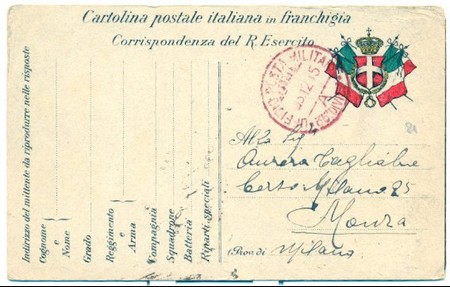 Cartolina postale italiana in franchigia
Corrispondenza del R. Esercito
POSTA MILITARE
Indirizzo del mittente da riprodurre nelle risposte
Cognome e Nome
Grado
Reggimento e Arma
Compagnia
Squadrone
Batteria
Riparti speciali
Alla Sig
Aurora Tagliabue
Corso Milano 25
Monza
(Prov. di Milano